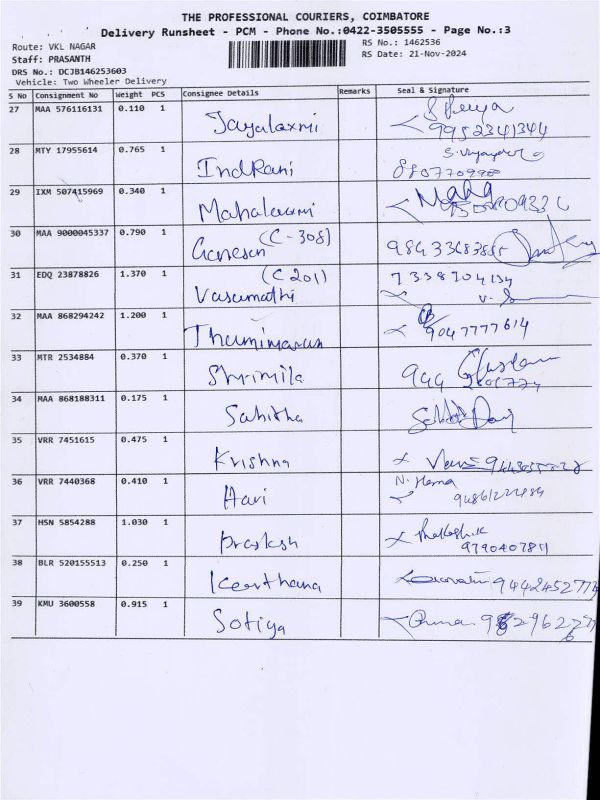 THE PROFESSIONAL COURIERS, COIMBATORE
Delivery Runsheet - PCM - Phone No.:0422-3505555 - Page No.:3
Route: VKL NAGAR RS No.: 1462536
Staff: PRASANTH RS Date: 21-Nov-2024
DRS No.: DCJB146253603
Vehicle: Two Wheeler Delivery
S No Consignment No Weight PCS Consignee Details Remarks Seal & Signature
27 MAA 576116131 0.110 1 Jayalaxmi
9952341344
28 MTY 17955614 0.765 1 IndRani
29 IXM 507415969 0.340 1 Mahalaxmi
30 MAA 9000045337 0.790 1 Ganesan (C-308)
31 EDQ 23878826 1.370 1 (C 201)
Vasumathi
32 MAA 868294242 1.200 1
9047777614
33 MTR 2534884 0.370 1 Shrimila
34 MAA 868188311 0.175 1 Sabitha
35 VRR 7451615 0.475 1 Krishna
36 VRR 7440368 0.410 1 Hari N. Hema
37 HSN 5854288 1.030 1 Prakash
9790407811
38 BLR 520155513 0.250 1 Keerthana
39 KMU 3600558 0.915 1 Sotiya